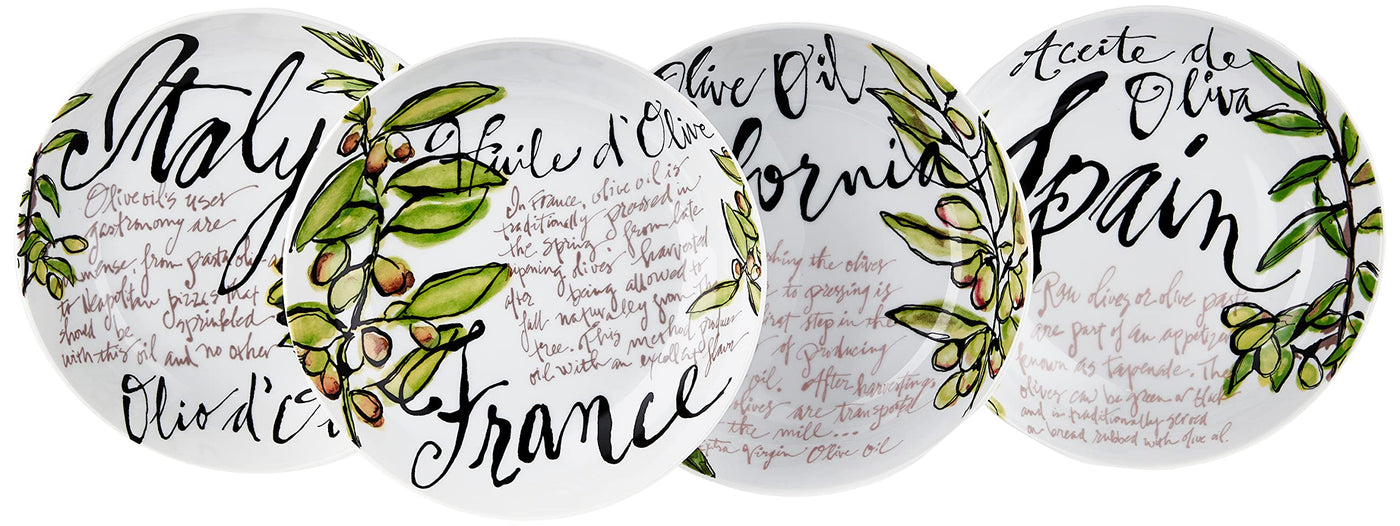 Italy
Olive oil's uses
gastronomy are
from pasta
to Neapolitan pizzas that
should be sprinkled
with this oil and no other
Olio d'
Huile d'Olive
In France, olive oil is
traditionally pressed in
the spring. from late
ripening olives harvested
after being allowed to
fall naturally from the
tree. This method produces
oil with an excellent flavor
France
Olive Oil
fornia
the olives
to pressing is
first step in the
of producing
oil. After harvesting
olives are transported
the mill...
Extra Virgin Olive Oil
Aceite de
Oliva
Spain
Raw olives or olive paste
are part of an appetizer
known as tapenade. The
olives can be green or black
and is traditionally served
on bread rubbed with olive oil.